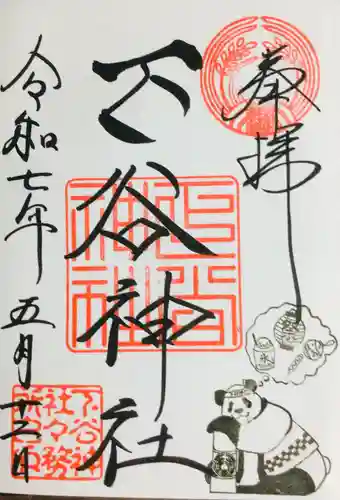 奉拝
下谷神社
令和七年五月十三日
下谷神社
下谷神
社々務
所之印